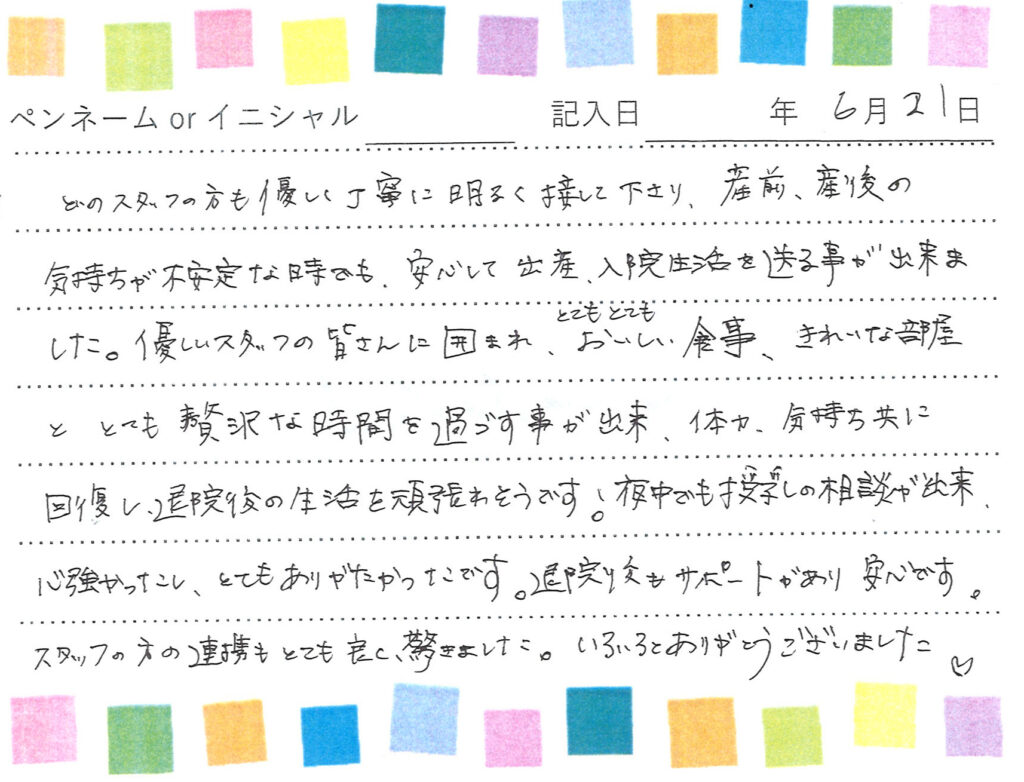 ペンネーム or イニシャル 記入日 年 6月21日
どのスタッフの方も優しく丁寧に明るく接して下さり、産前、産後の
気持ちが不安定な時でも、安心して出産、入院生活を送る事が出来ま
した。優しいスタッフの皆さんに囲まれ、とてもとてもおいしい食事、きれいな部屋
と とても贅沢な時間を過ごす事が出来、体力、気持ち共に
回復し、退院後の生活を頑張れそうです!夜中でも授乳の相談が出来、
心強かったし、とてもありがたかったです。退院後もサポートがあり安心です。
スタッフの方の連携もとても良く、驚きました。いろいろとありがとうございました♡